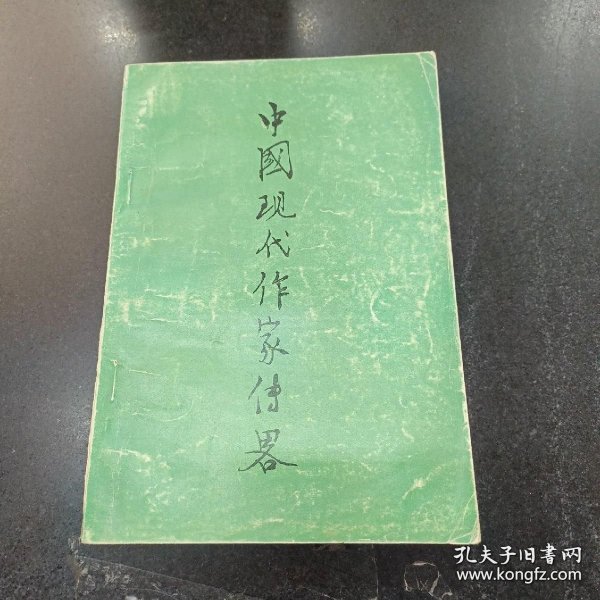 中國现代作家傳畧
孔夫子旧书网
www.kongfz.com